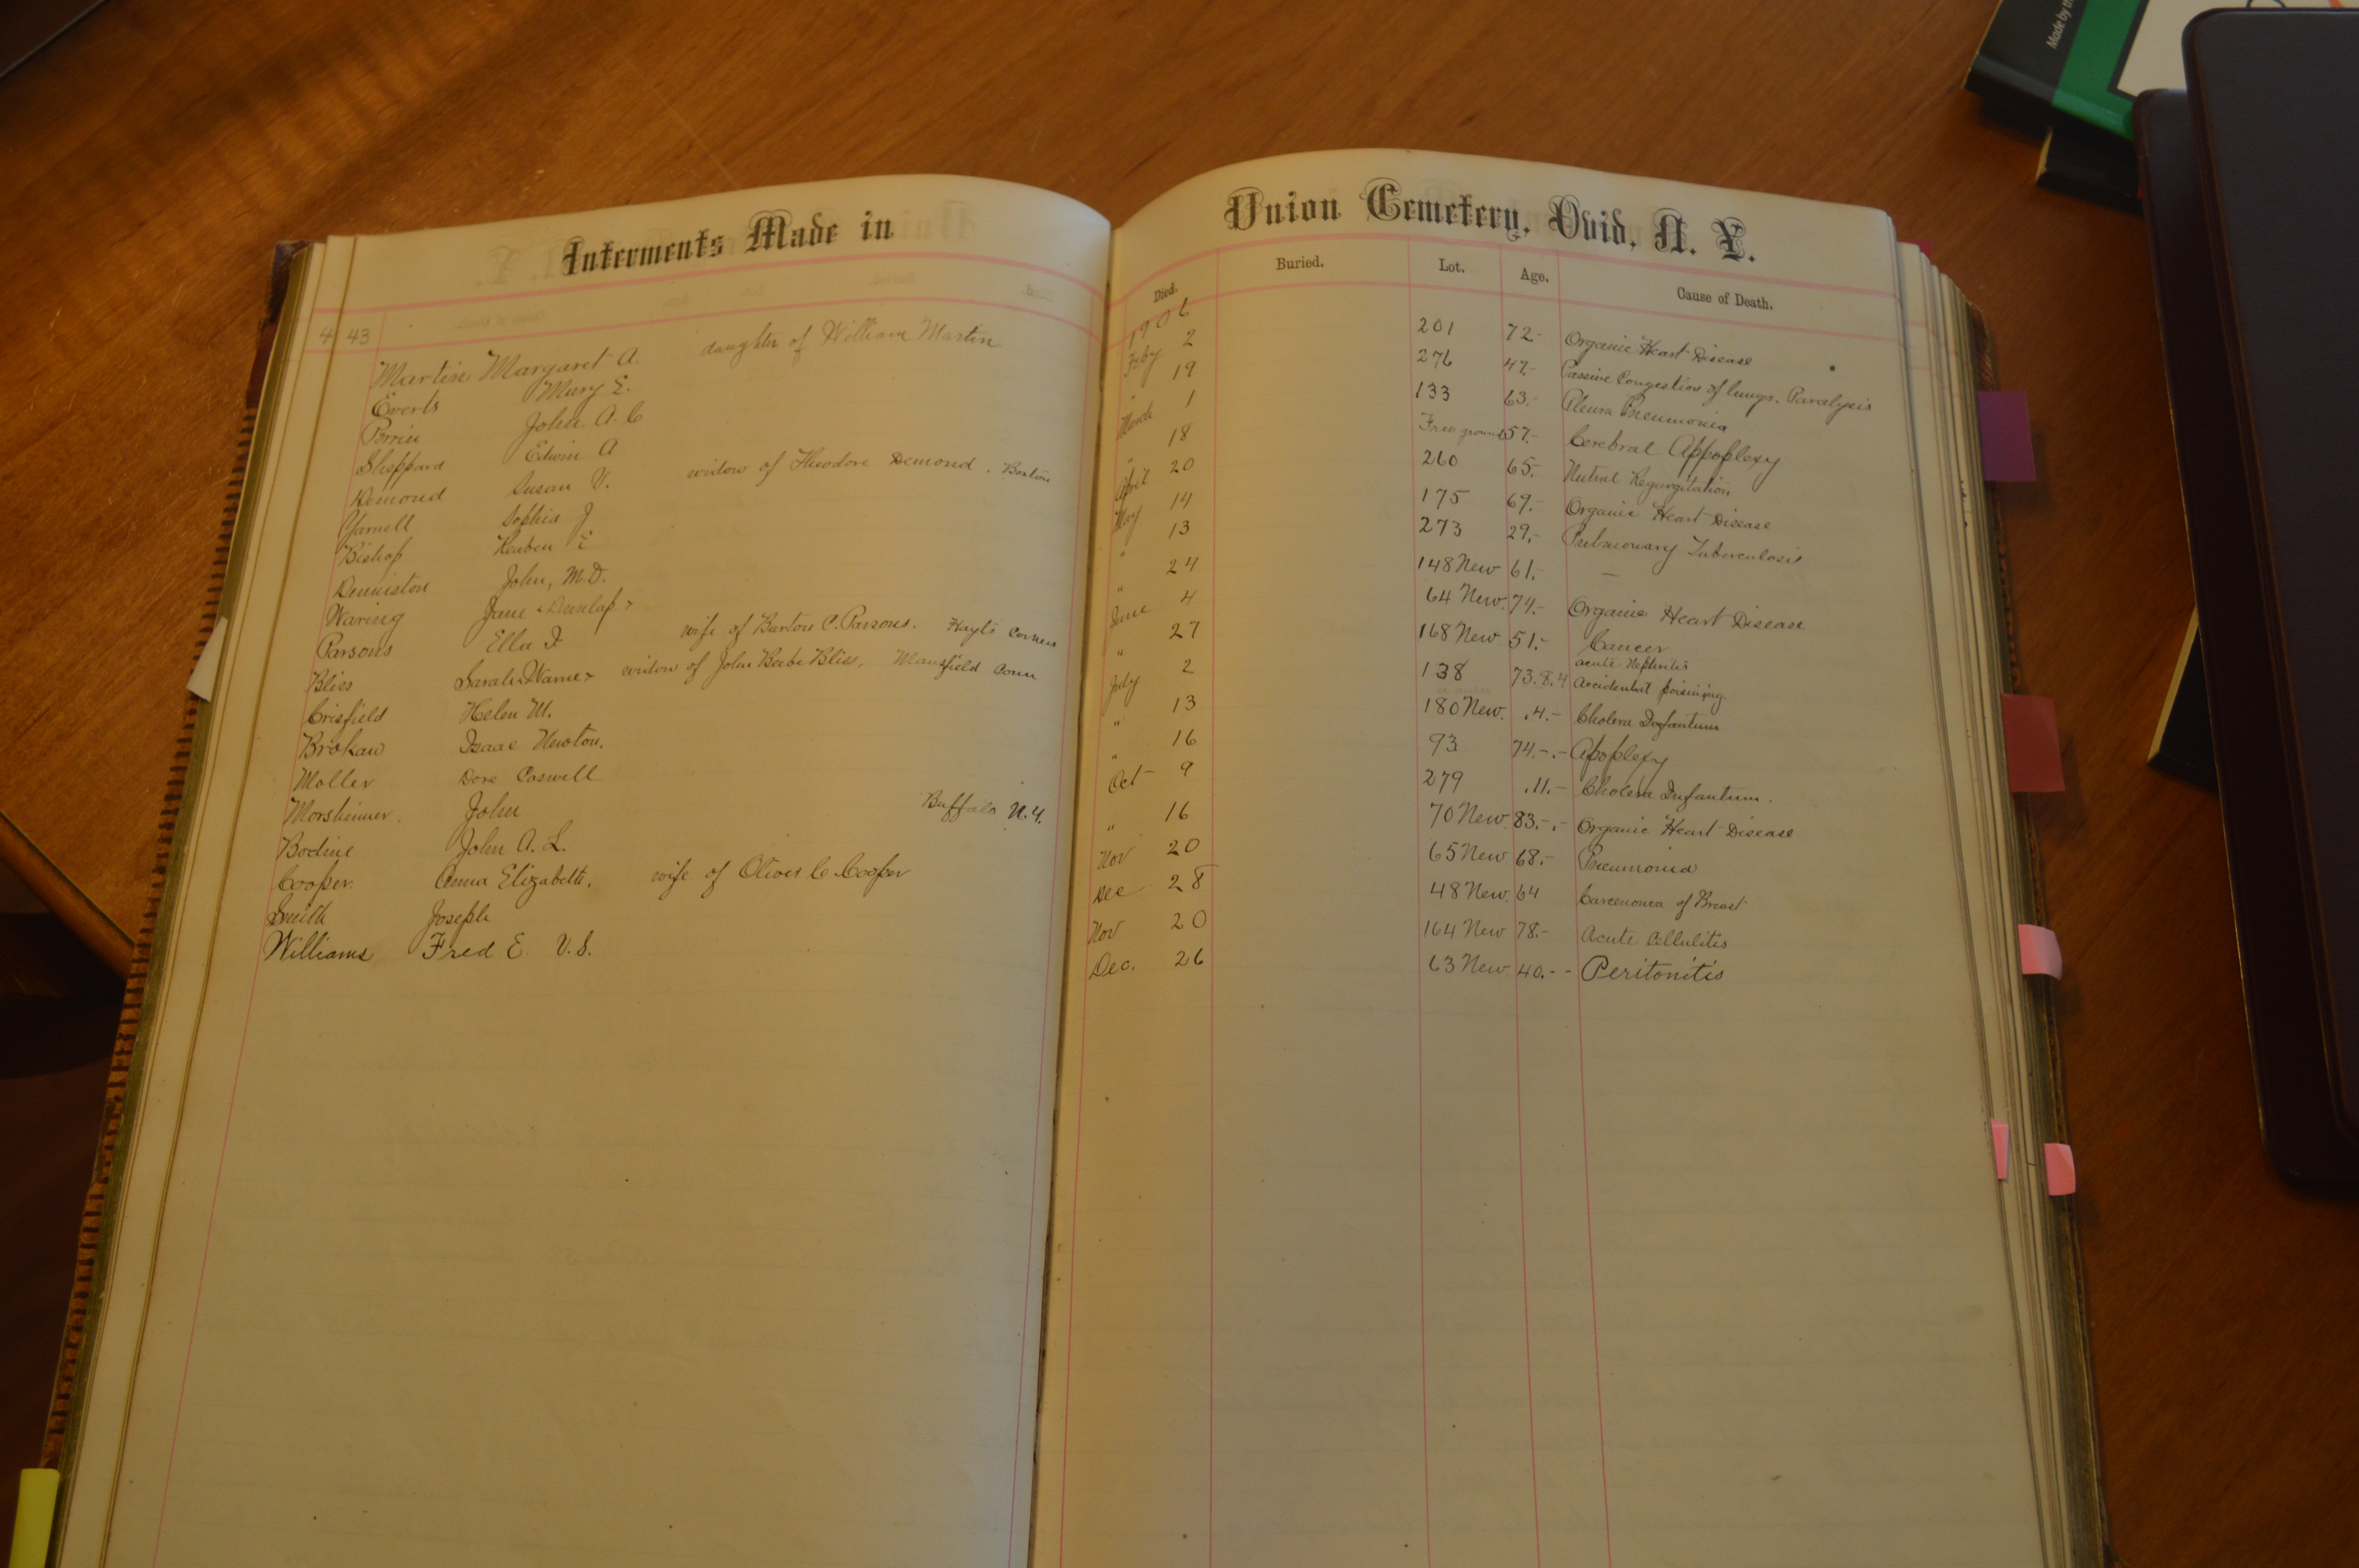 Interments Made in Union Cemetery, Ovid, N. Y.
Died. Buried. Lot. Age. Cause of Death.
443
1906
Martin Margaret A. daughter of William Martin Feby 2 201 72- Organic Heart Disease
Everts Mary E. " 19 276 47.- Passive Congestion of lungs. Paralysis
Perrin John A. C March 1 133 63.- Pleura Pneumonia
Sheppard Edwin A " 18 Free ground 57.- Cerebral Appoplexy
Demond Susan V. widow of Theodore Demond. Boston April 20 260 65.- Regurgitation
Yarnell Sophia J May 14 175 69.- Organic Heart Disease
Bishop Reuben E " 13 273 29.- Pulmonary Tuberculosis
Denniston John, M.D. " 24 148 New 61.- —
Waring Jane "Dunlap" June 4 64 New. 74.- Organic Heart Disease
Parsons Ella F. wife of Burton C. Parsons. Hayts Corners " 27 168 New 51.- Cancer
Bliss Sarah widow of John Bebe Bliss, Mansfield Conn July 2 138 73.8.4 acute Nephritis
Accidental poisining.
Crisfield Helen M. " 13 180 New. .4.- Cholera Infantum
Brokaw Isaac Newton. " 16 93 74.-.- Apoplexy
Moller Dore Caswell Oct 9 279 .11.- Cholera Infantum.
Morsheimer. John Buffalo N.Y. " 16 70 New 83.-.- Organic Heart Disease
Bodine John A. L. Nov 20 65 New 68.- Pneumonia
Cooper. Anna Elizabeth. wife of Oliver C Cooper Dec 28 48 New. 64 of Breast
Smith Joseph Nov 20 164 New 78.- Acute Cellulitis
Williams Fred E. V.S. Dec. 26 63 New 40.-- Peritonitis
Made by th